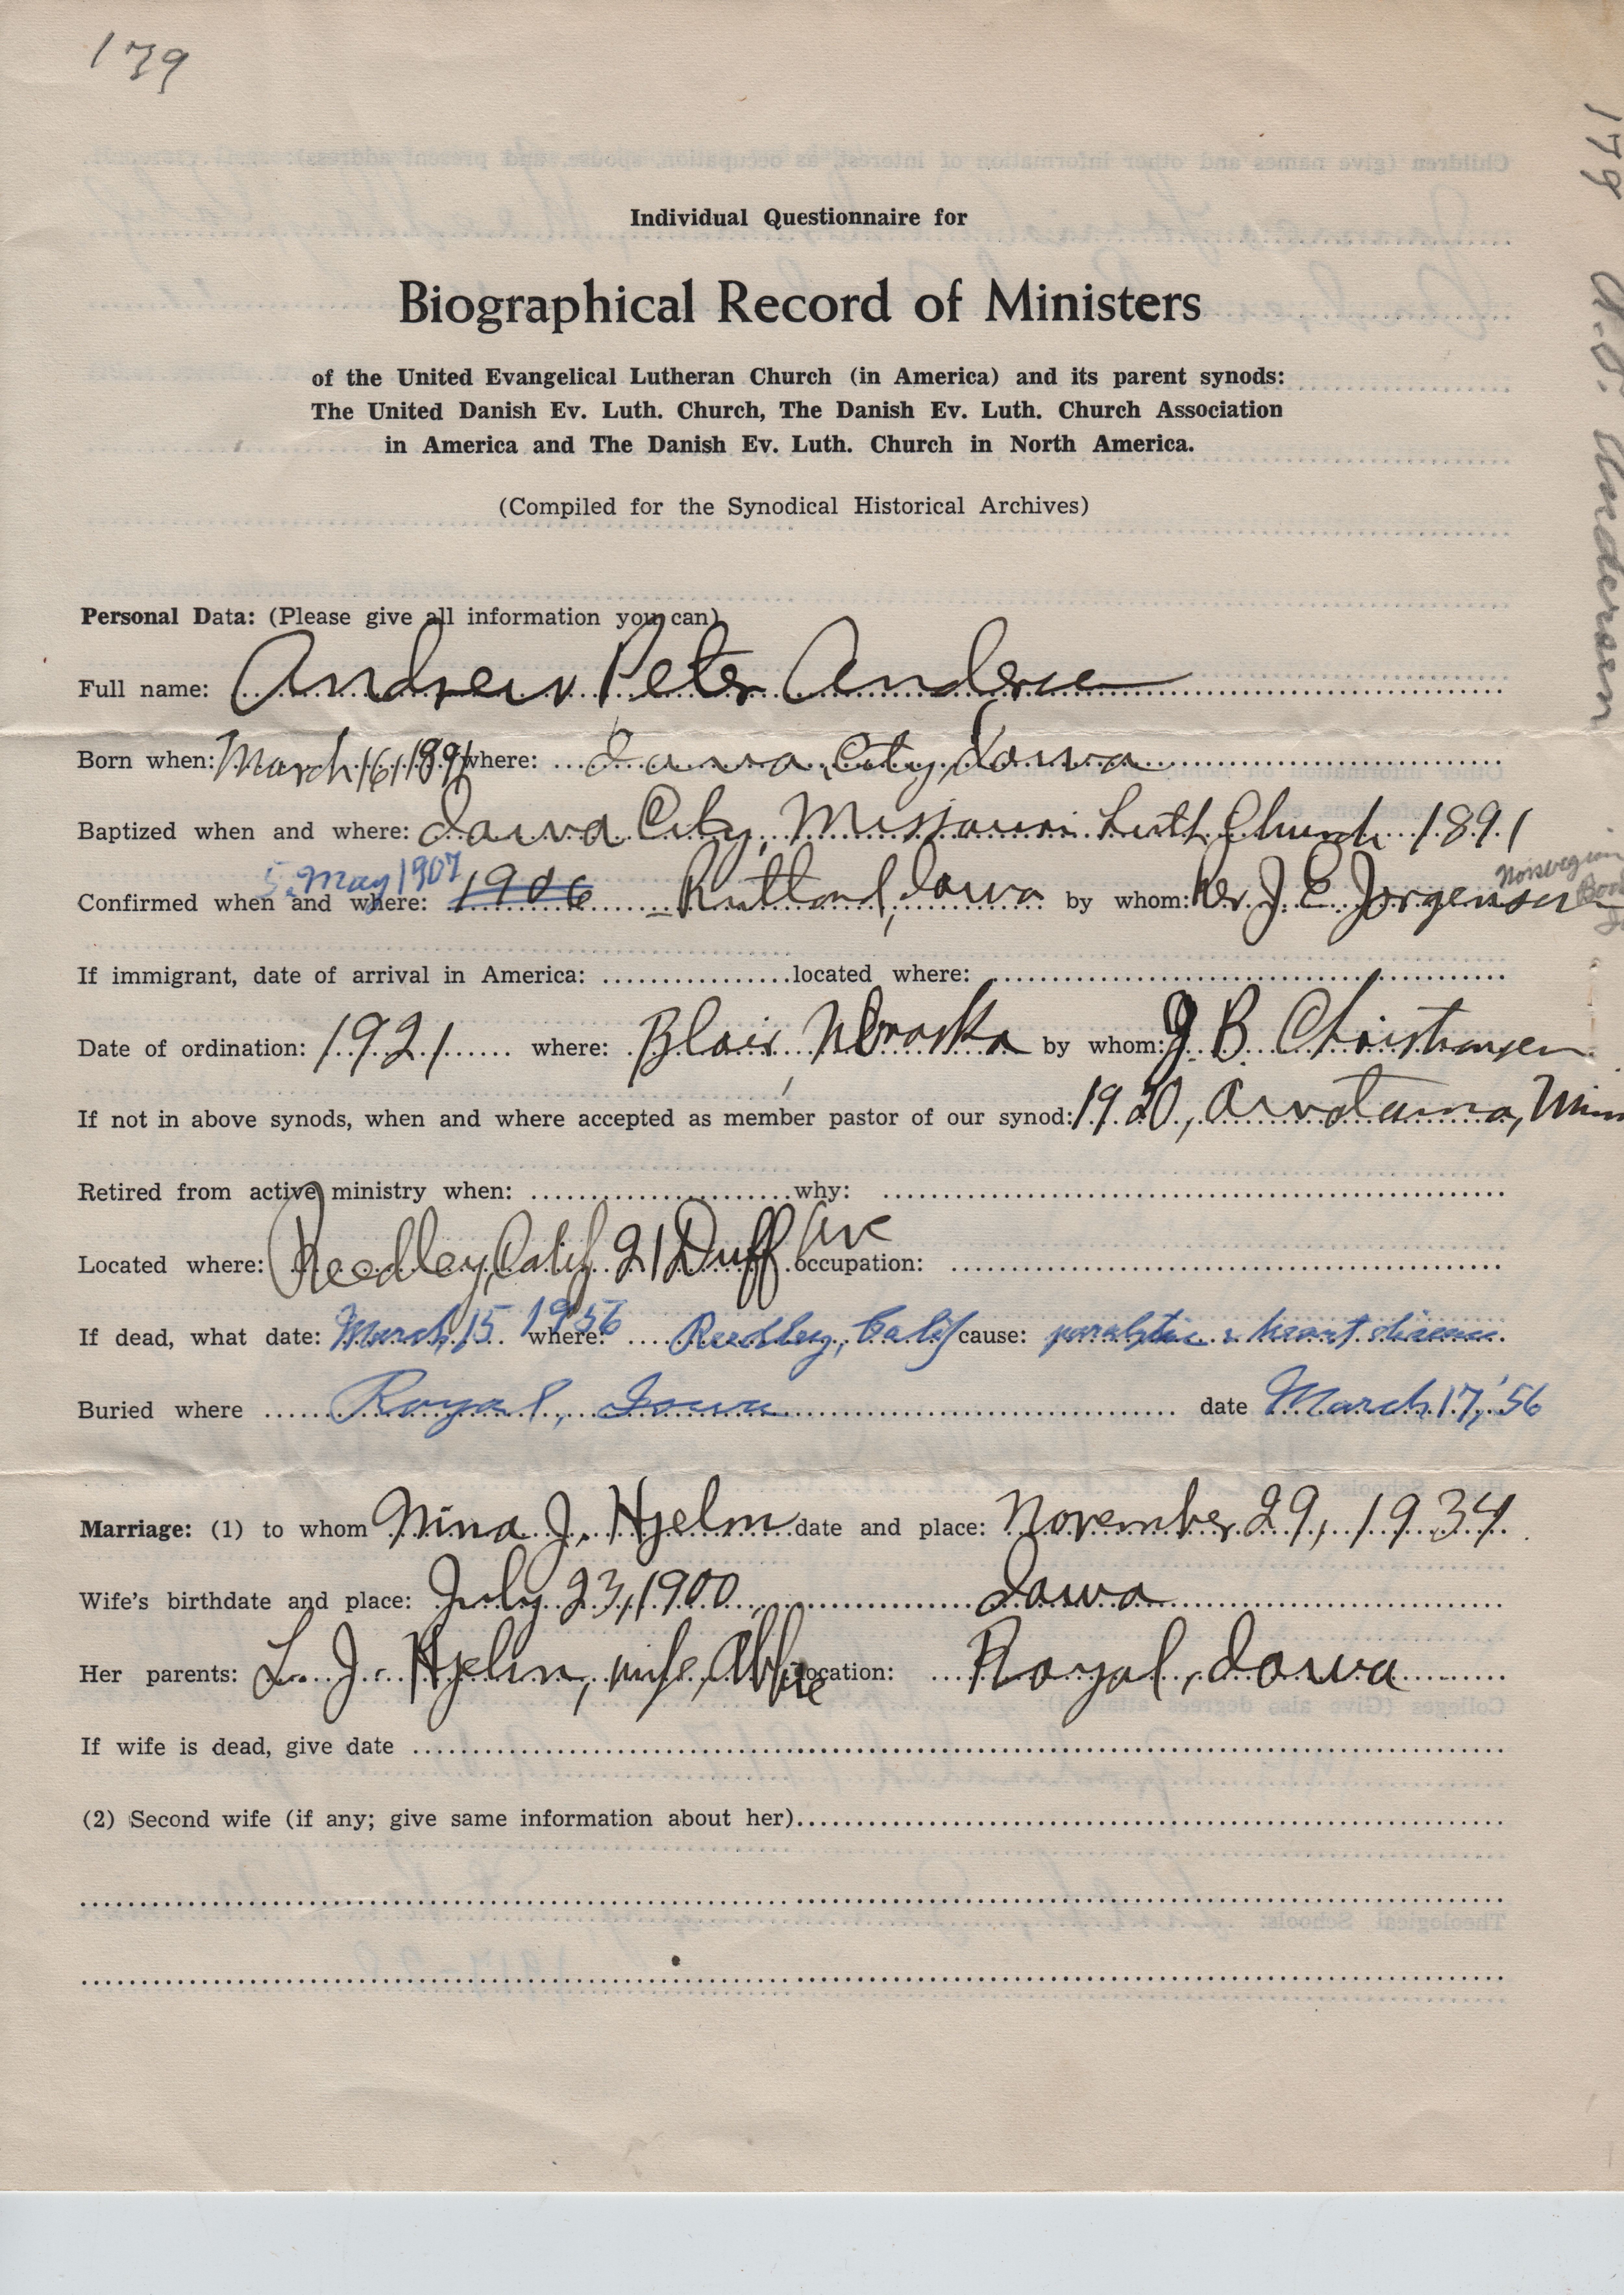 179
179 A. P. Andersen
Individual Questionnaire for
Biographical Record of Ministers
of the United Evangelical Lutheran Church (in America) and its parent synods:
The United Danish Ev. Luth. Church, The Danish Ev. Luth. Church Association
in America and The Danish Ev. Luth. Church in North America.
(Compiled for the Synodical Historical Archives)
Personal Data: (Please give all information you can)
Full name: Andrew Peter Andersen
Born when: March 16, 1891 where: Iowa City, Iowa
Baptized when and where: Iowa City, Missouri Luth Church 1891
5. May 1907 Norwegian
Confirmed when and where: 1906 Rutland, Iowa by whom: Rev. J. E. Jorgensen
If immigrant, date of arrival in America: located where:
Date of ordination: 1921 where: Blair, Nebraska by whom: J. B. Christiansen
If not in above synods, when and where accepted as member pastor of our synod: 1920, Minn
Retired from active ministry when: why:
Located where: Reedley, Calif 21 Duff Ave occupation:
If dead, what date: March 15 1956 where: Reedley, Calif cause: heart disease
Buried where Royal, Iowa date March 17, '56
Marriage: (1) to whom Nina J. Hjelm date and place: November 29, 1934
Wife's birthdate and place: July 23, 1900 Iowa
Her parents: L. J. Hjelm, wife Abbie location: Royal, Iowa
If wife is dead, give date
(2) Second wife (if any; give same information about her)